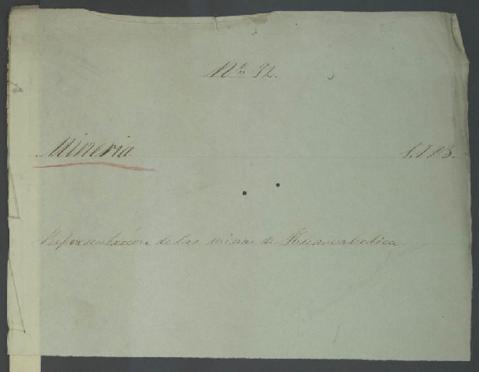 Nº 32.
Mineria 1.785.
Representacion de las minas de Huancavelica